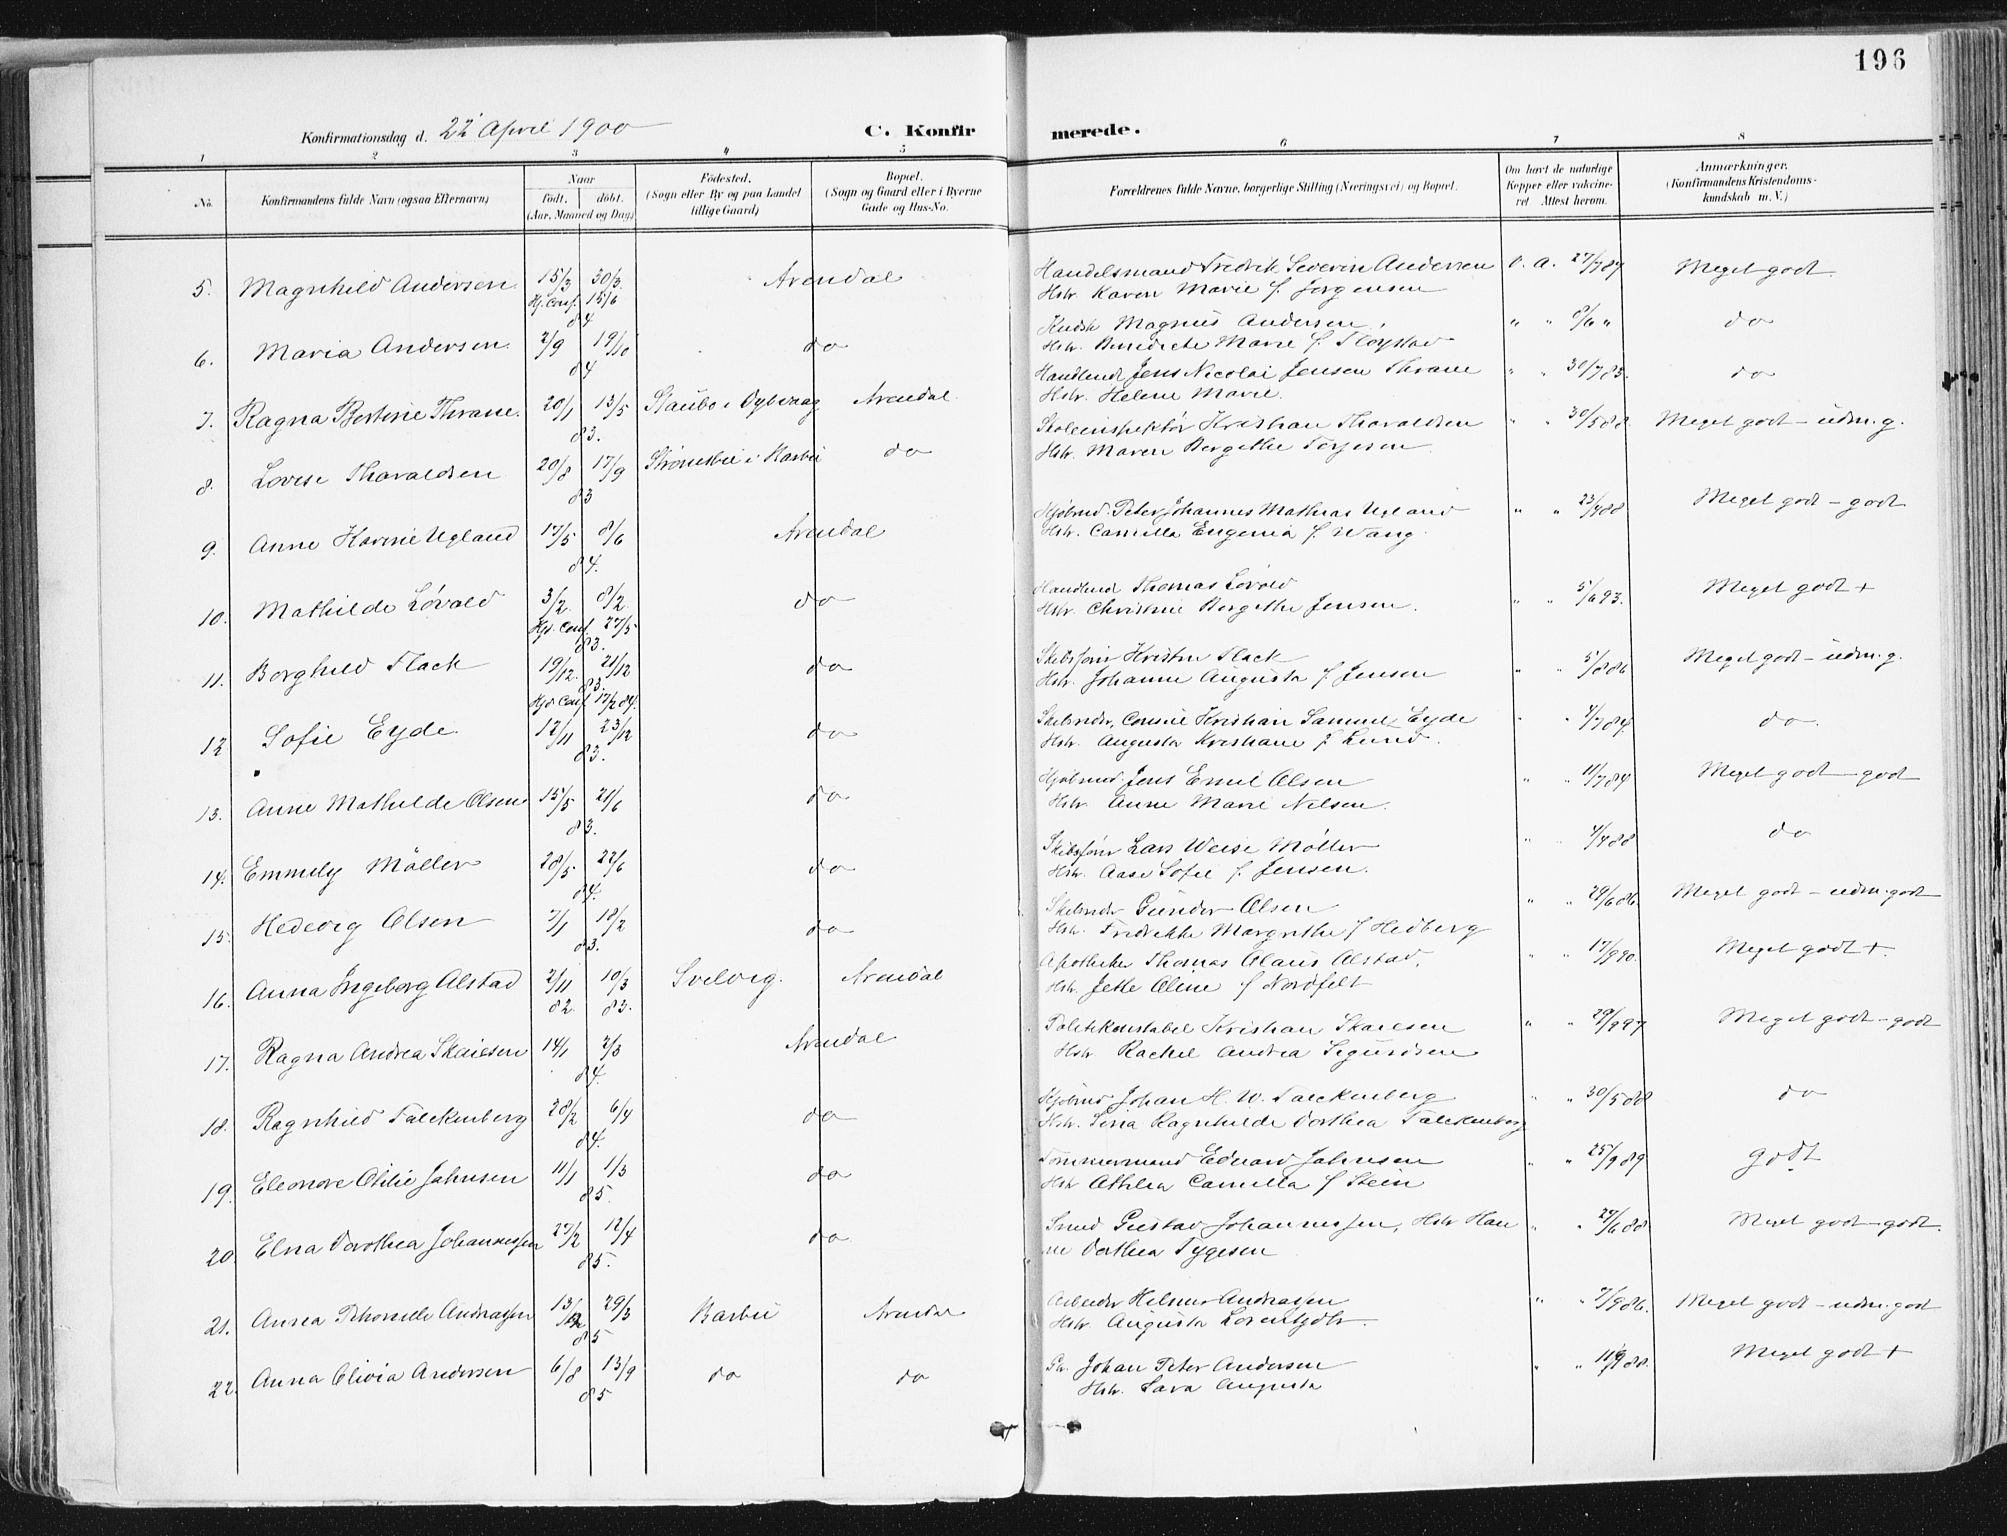 196
Konfirmationsdag d. 22 April 1900
C. Konfirmerede.
1 2 3 4 5 6 7 8
No.
Konfirmandens fulde Navn (ogsaa Efternavn)
Naar
født. døbt.
(Aar, Maaned og Dag)
Fødested.
(Sogn eller By og paa Landet
tillige Gaard)
Bopæl.
(Sogn og Gaard eller i Byerne
Gade og Hus-No.
Forældrenes fulde Navne, borgerlige Stilling (Næringsvei) og Bopæl.
Om havt de naturlige
Kopper eller vakcine-
ret Attest herom.
Anmærkninger.
(Konfirmandens Kristendoms-
kundskab m. V.)
5. Magnhild Andersen 15/3 30/3 Arendal Handelsmand Fredrik Severin Andersen v. a. 27/7 84 Meget godt
Hj. Conf. 15/6 Hstr. Karen Marie f. Jørgensen
84
6. Maria Andersen 2/9 19/10 do Kudsk Magnus Andersen " " 8/6 " do
84 Hstr. Benedicte Marie f. Fløystad
7. Ragna Bertine Thrane 20/1 13/5 Staubo i Dybvaag Arendal Handlende Jens Nicolai Jensen Thrane " " 30/7 83. do
83. Hstr. Helene Marie.
8. Lovise Tharaldsen 20/8 17/9 Strømsbu i Barbu do Skoleinspektør Kristian Tharaldsen " " 30/5 88. Meget godt - udm. g.
83 Hstr. Maren Bergithe Terjesen
9. Anne Karine Ugland 17/5 8/6 Arendal Sjømd. Peter Johannes Mathias Ugland " " 23/4 88 Meget godt - godt
84. Hstr. Camilla Eugenia f. Wang
10. Mathilde Løvold 3/2 8/2 do Handlend Thomas Løvold
Hj. Conf. 27/5 Hstr. Christine Bergithe Jensen. " " 5/6 93. Meget godt +
83.
11. Borghild Flack 19/12 21/12 do Skibsfører Kristen Flack " " 5/8 86 Meget godt - udm. g.
83. Hstr. Johanne Augusta f. Jensen
Hj. Conf 17/2 84.
12. Sofie Eyde 12/11 23/12 do Skibsreder, Consul Kristian Samuel Eyde " " 4/7 84. do.
83. Hstr. Augusta Kristiane f. Lund.
13. Anne Mathilde Olsen 15/5 21/6 do Sjømd. Jens Emil Olsen " " 11/7 84 Meget godt - godt
83. Hstr. Anne Marie Nilsen.
14. Emmely Møller 28/5 22/6 do Skibsfører Lars Weise Møller " " 4/4 88 do
84. Hstr. Aase Sofie f. Jensen.
15. Hedevig Olsen 7/1 18/2 do Skibsreder Gunder Olsen " " 29/6 86. Meget godt - udm. godt
83. Hstr. Fredrikke Margrethe f Hedberg
16. Anna Ingeborg Alstad 2/11 10/3 Svelvig. Arendal Apotheker Thomas Olaus Alstad. " " 17/9 90. Meget godt +
82. 83. Hstr. Jethe Oline f Nordfelt
17. Ragna Andrea Skaiesen 14/1 2/3 Arendal Politikonstabel Kristian Skaiesen " " 29/9 97 Meget godt - godt
84. Hstr Rachel Andrea Sigurdsen
18. Ragnhild Falckenberg 28/2 6/4 do Sjømd Johan H. W. Falckenberg " " 30/5 88 do
84. Hstr. Sina Ragnhilde Dorthea Falckenberg
19. Eleonore Otilie Johnsen 11/1 1/3 do Tømmermand Edvard Johnsen " " 25/9 89 godt
85. Hstr Athlea Camilla f Stein
20. Elna Dorothea Johannessen 27/2 12/4 do Smed Gustav Johannessen, Hstr Han " " 29/6 88 Meget godt - godt.
85. ne Dorthea Tygesen
21. Anna Thomille Andreassen 13/12 29/3 Barbu Arendal Arbeider Helmer Andreassen " " 7/9 86. Meget godt - udm. godt
85 Hstr. Augusta Lorentzdtr.
22. Anna Olivia Andersen 6/8 13/9 do do Johan Peter Andersen " " 11/9 88. Meget godt +
85 Hstr. Sara Augusta